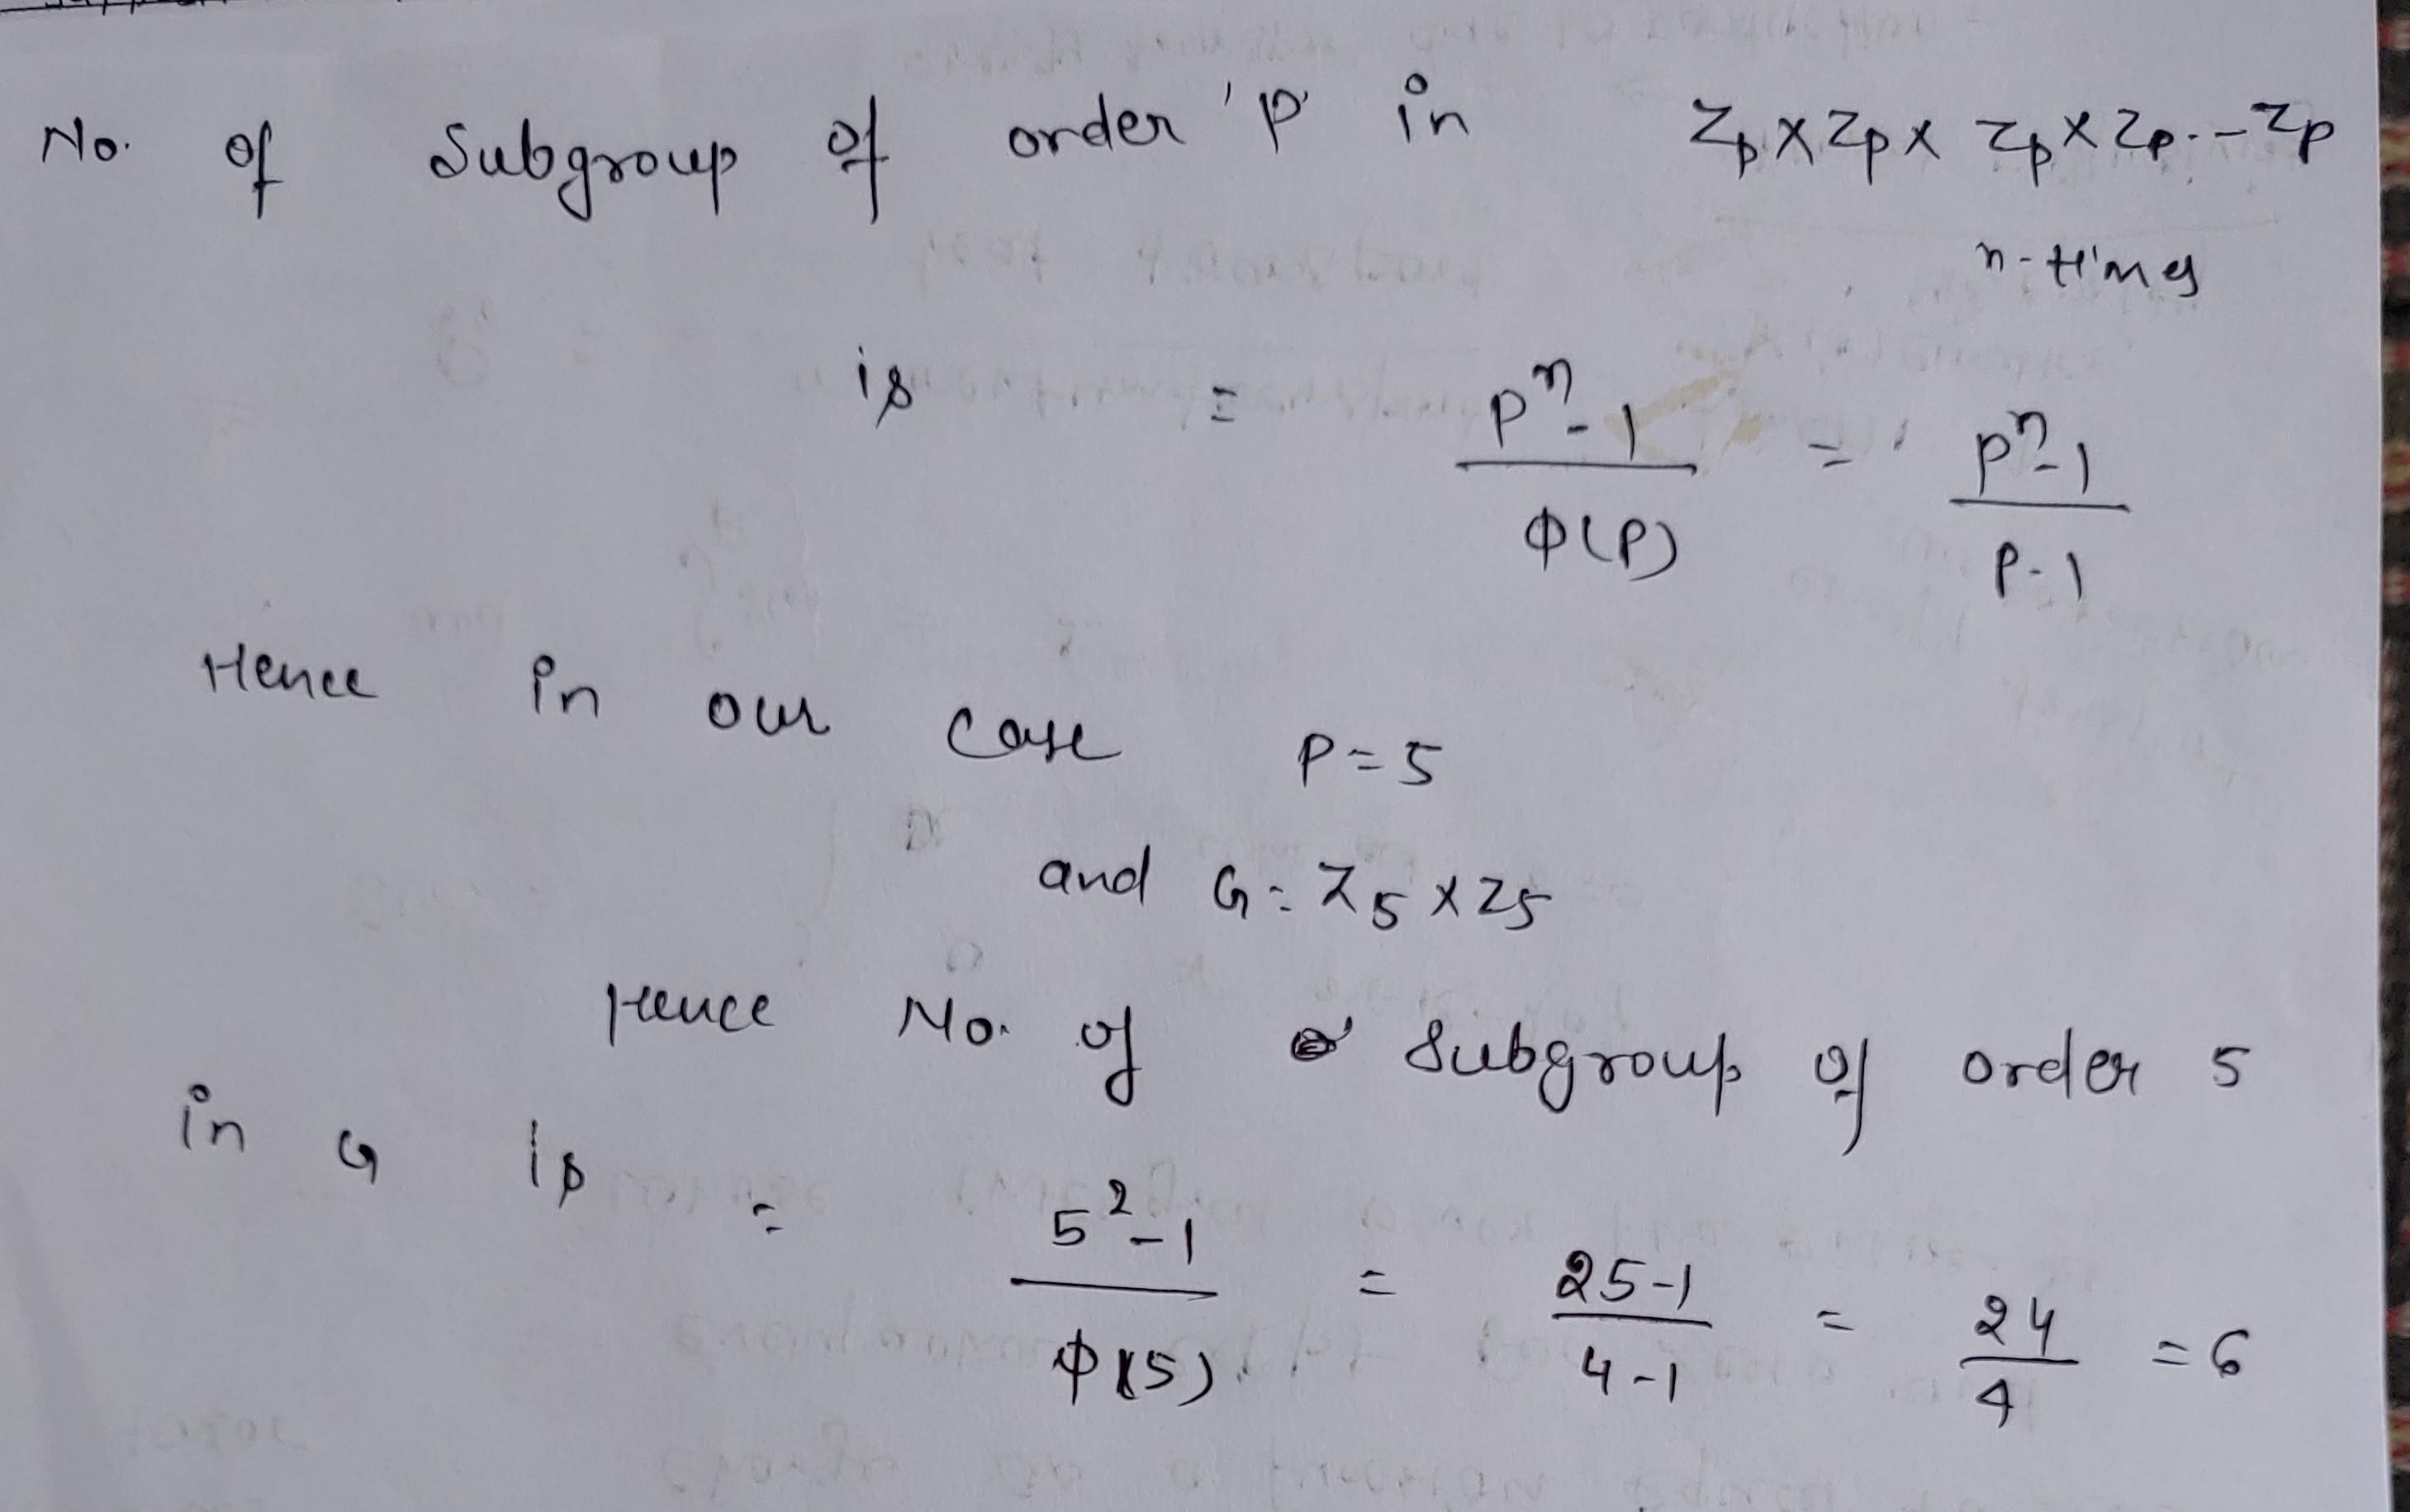 No. of Subgroup of order 'p' in Zp x Zp x Zp x Zp.--Zp
n-times
is = p^n-1 / φ(P) = p^n-1 / P-1
Hence in our case P=5
and G = Z5 x Z5
Hence No. of Subgroup of order 5
in G is = 5^2-1 / φ(5) = 25-1 / 4-1 = 24 / 4 = 6